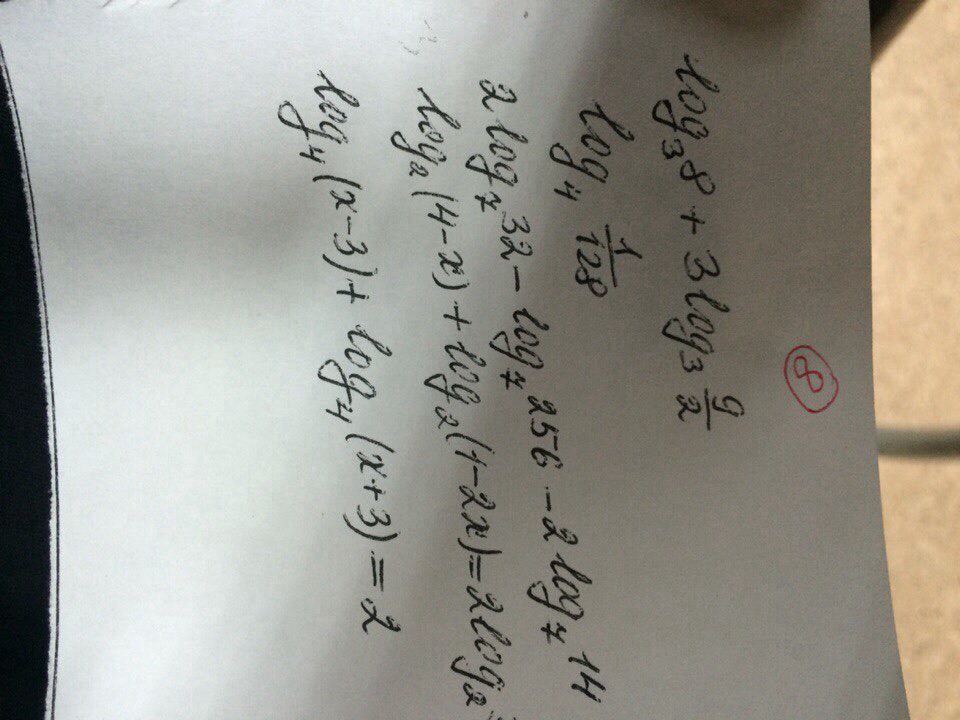 8
log₃8 + 3log₃ 9/2
log₄ 1/128
2log₇32 - log₇256 - 2log₇14
log₂(4-x) + log₂(1-2x) = 2log₂
log₄(x-3) + log₄(x+3) = 2